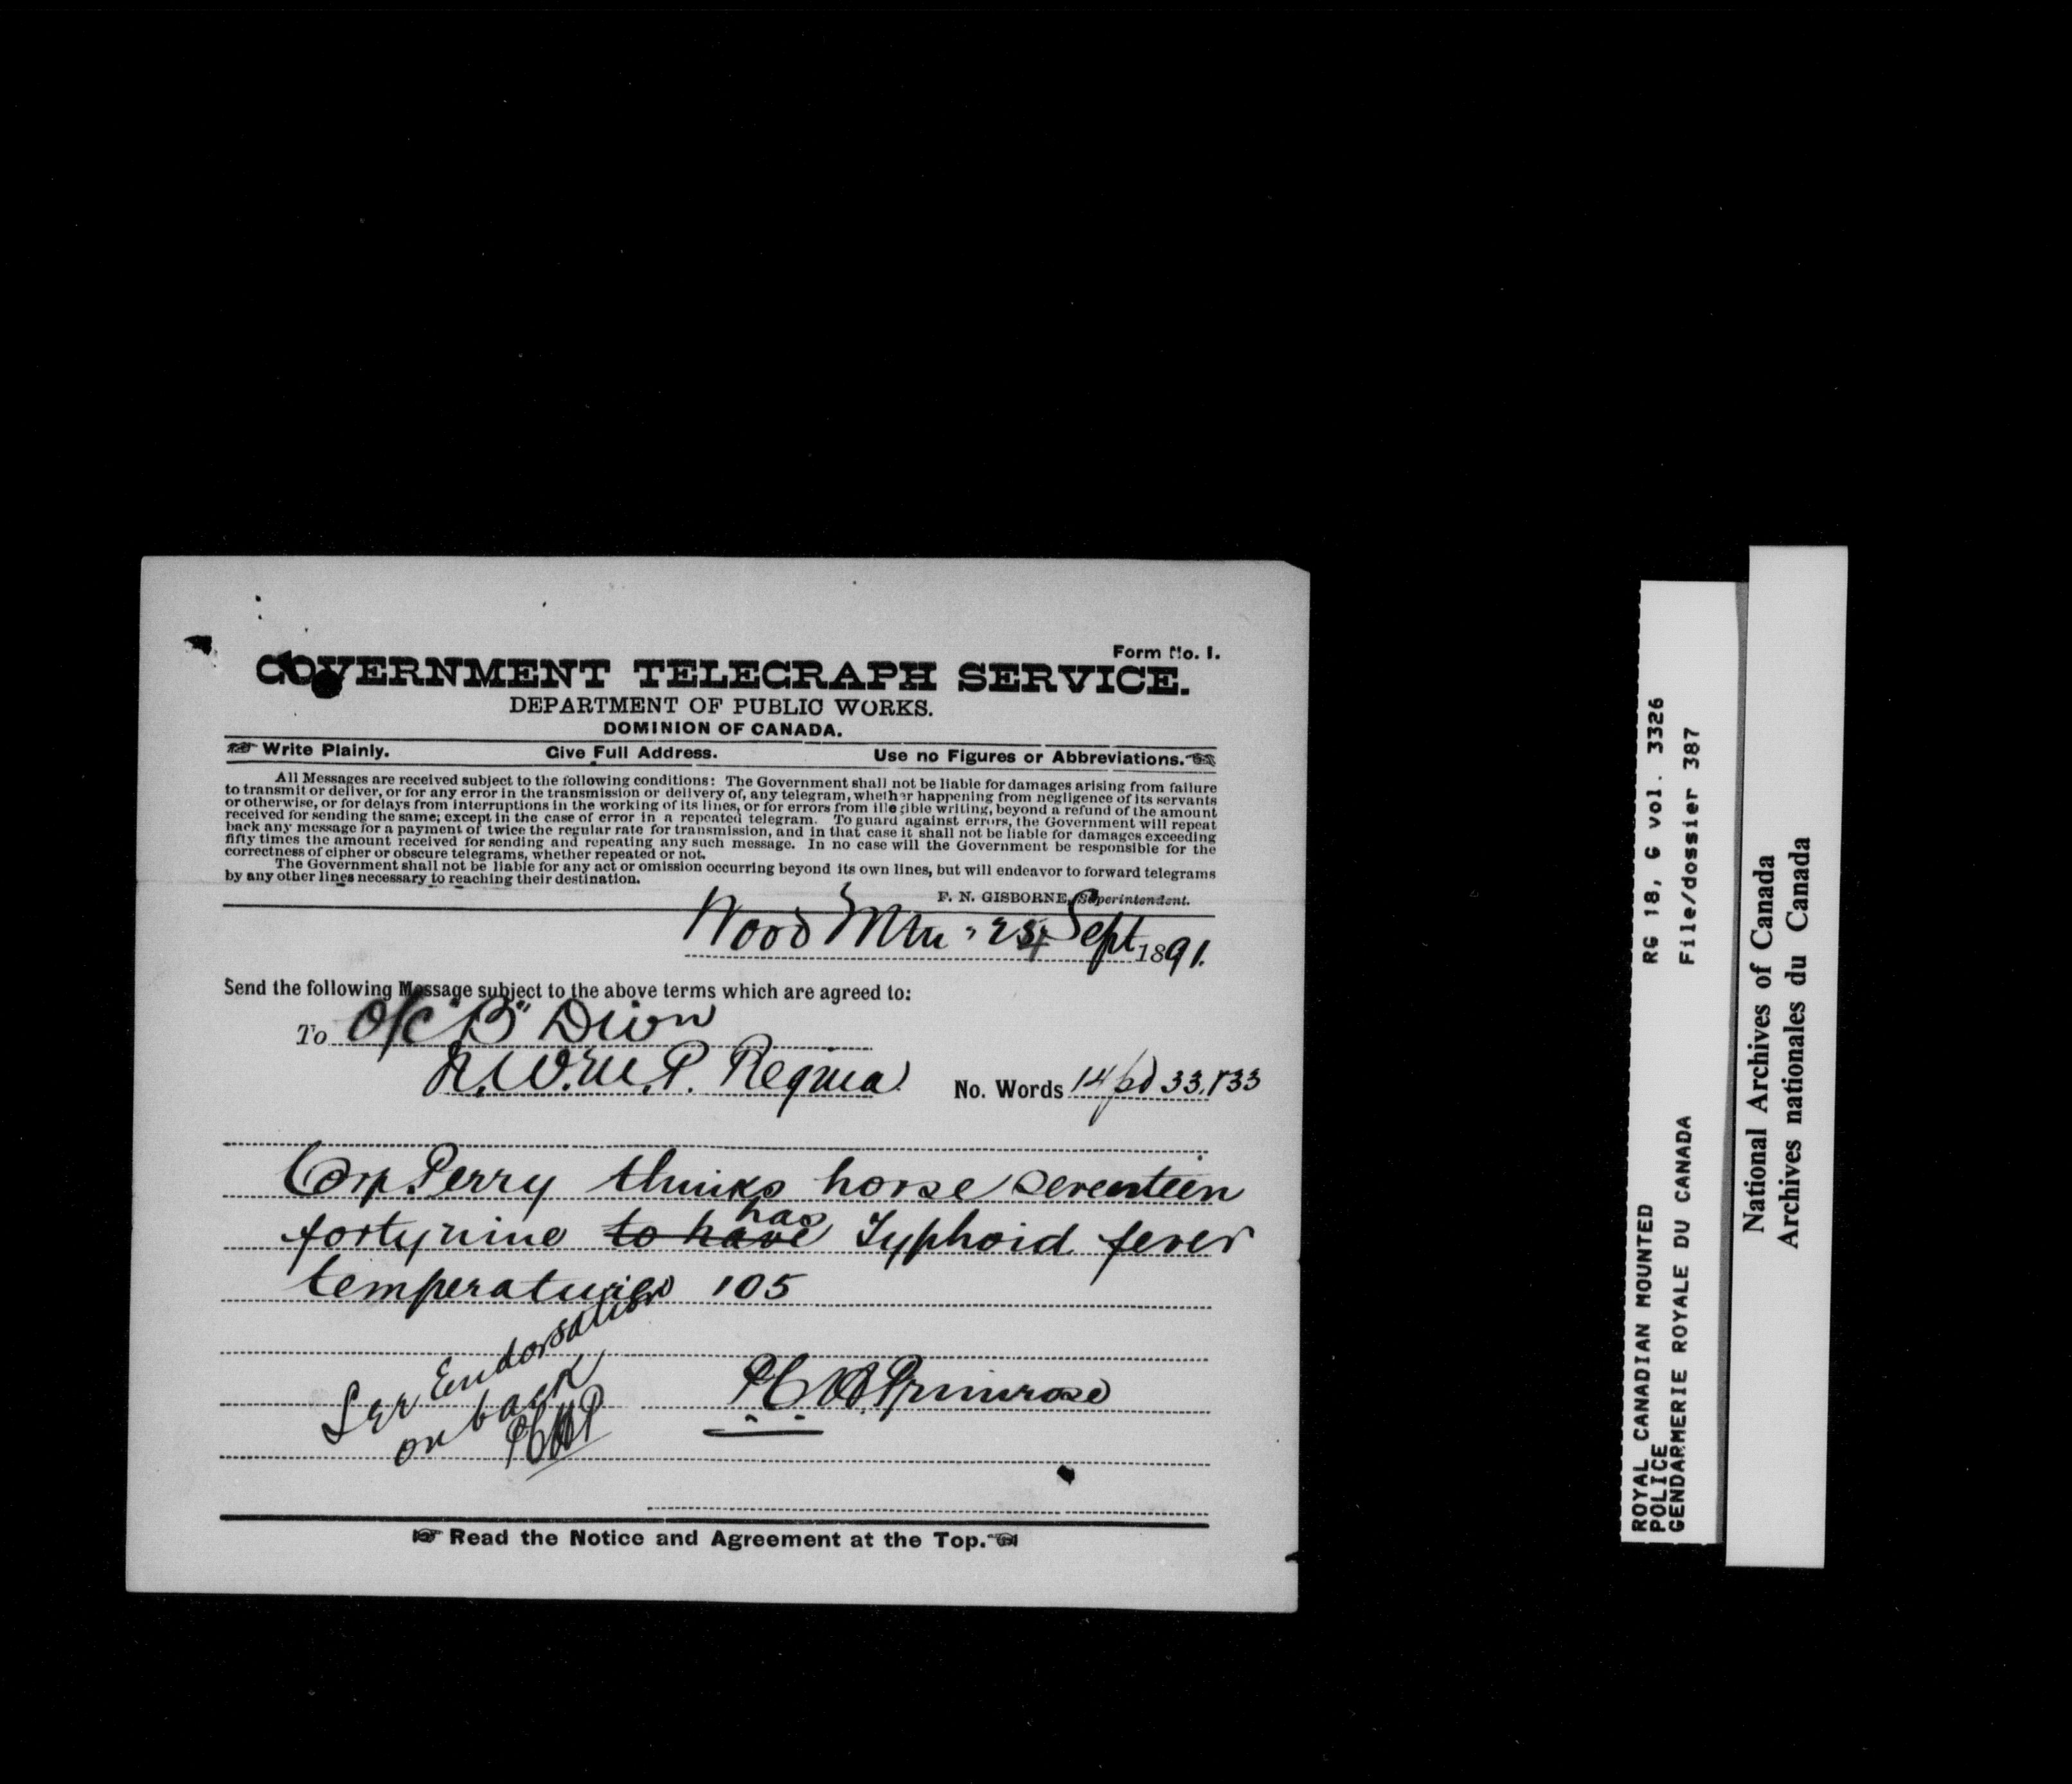 Form No. 1.
GOVERNMENT TELEGRAPH SERVICE.
DEPARTMENT OF PUBLIC WORKS.
DOMINION OF CANADA.
Write Plainly. Give Full Address. Use no Figures or Abbreviations.
All Messages are received subject to the following conditions: The Government shall not be liable for damages arising from failure
to transmit or deliver, or for any error in the transmission or delivery of, any telegram, whether happening from negligence of its servants
or otherwise, or for delays from interruptions in the working of its lines, or for errors from illegible writing, beyond a refund of the amount
received for sending the same; except in the case of error in a repeated telegram. To guard against errors, the Government will repeat
back any message for a payment of twice the regular rate for transmission, and in that case it shall not be liable for damages exceeding
fifty times the amount received for sending and repeating any such message. In no case will the Government be responsible for the
correctness of cipher or obscure telegrams, whether repeated or not.
The Government shall not be liable for any act or omission occurring beyond its own lines, but will endeavor to forward telegrams
by any other lines necessary to reaching their destination.
F. N. GISBORNE, Superintendent.
Wood Mtn 24 Sept 1891.
Send the following Message subject to the above terms which are agreed to:
To O/C "B" Divn
N.W.M.P. Regina
No. Words 14 pd 33,
Corp. Perry thinks horse seventeen
has
fortynine to have Typhoid fever
temperature 105
See Endorsation
on back
HP
Primrose
Read the Notice and Agreement at the Top.
ROYAL CANADIAN MOUNTED
POLICE
GENDARMERIE ROYALE DU CANADA
RG 18, G vol. 3326
File/dossier 387
National Archives of Canada
Archives nationales du Canada